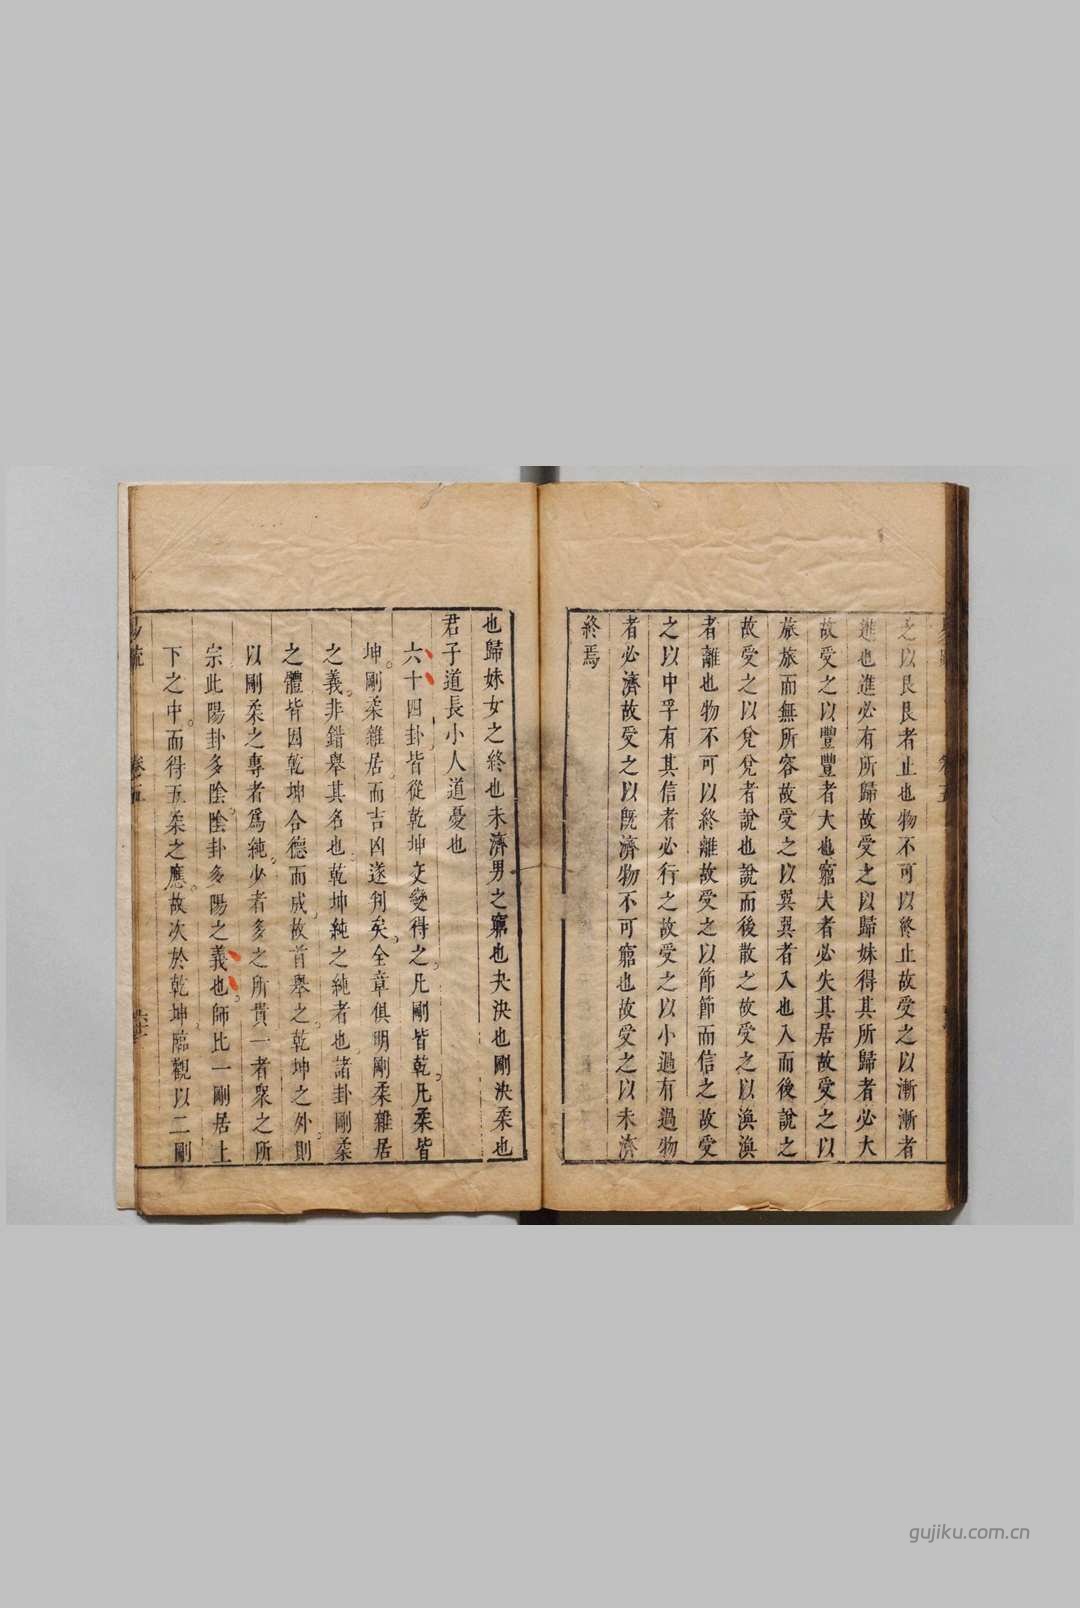 之以艮艮者止也物不可以終止故受之以漸漸者
進也進必有所歸故受之以歸妹得其所歸者必大
故受之以豐豐者大也窮大者必失其居故受之以
旅旅而無所容故受之以巽巽者入也入而後說之
故受之以兌兌者說也說而後散之故受之以渙渙
者離也物不可以終離故受之以節節而信之故受
之以中孚有其信者必行之故受之以小過有過物
者必濟故受之以旣濟物不可窮也故受之以未濟
終焉
也歸妹女之終也未濟男之窮也夬決也剛決柔也
君子道長小人道憂也
六十四卦皆從乾坤交變得之凡剛皆乾凡柔皆
坤剛柔雜居而吉凶遂判矣全章俱明剛柔雜居
之義非錯舉其名也乾坤純之純者也諸卦剛柔
之體皆因乾坤合德而成故首舉之乾坤之外則
以剛柔之專者爲純少者多之所貴一者衆之所
宗此陽卦多陰陰卦多陽之義也師比一剛居上
下之中而得五柔之應故次於乾坤臨觀以二剛
卷五
gujiku.com.cn